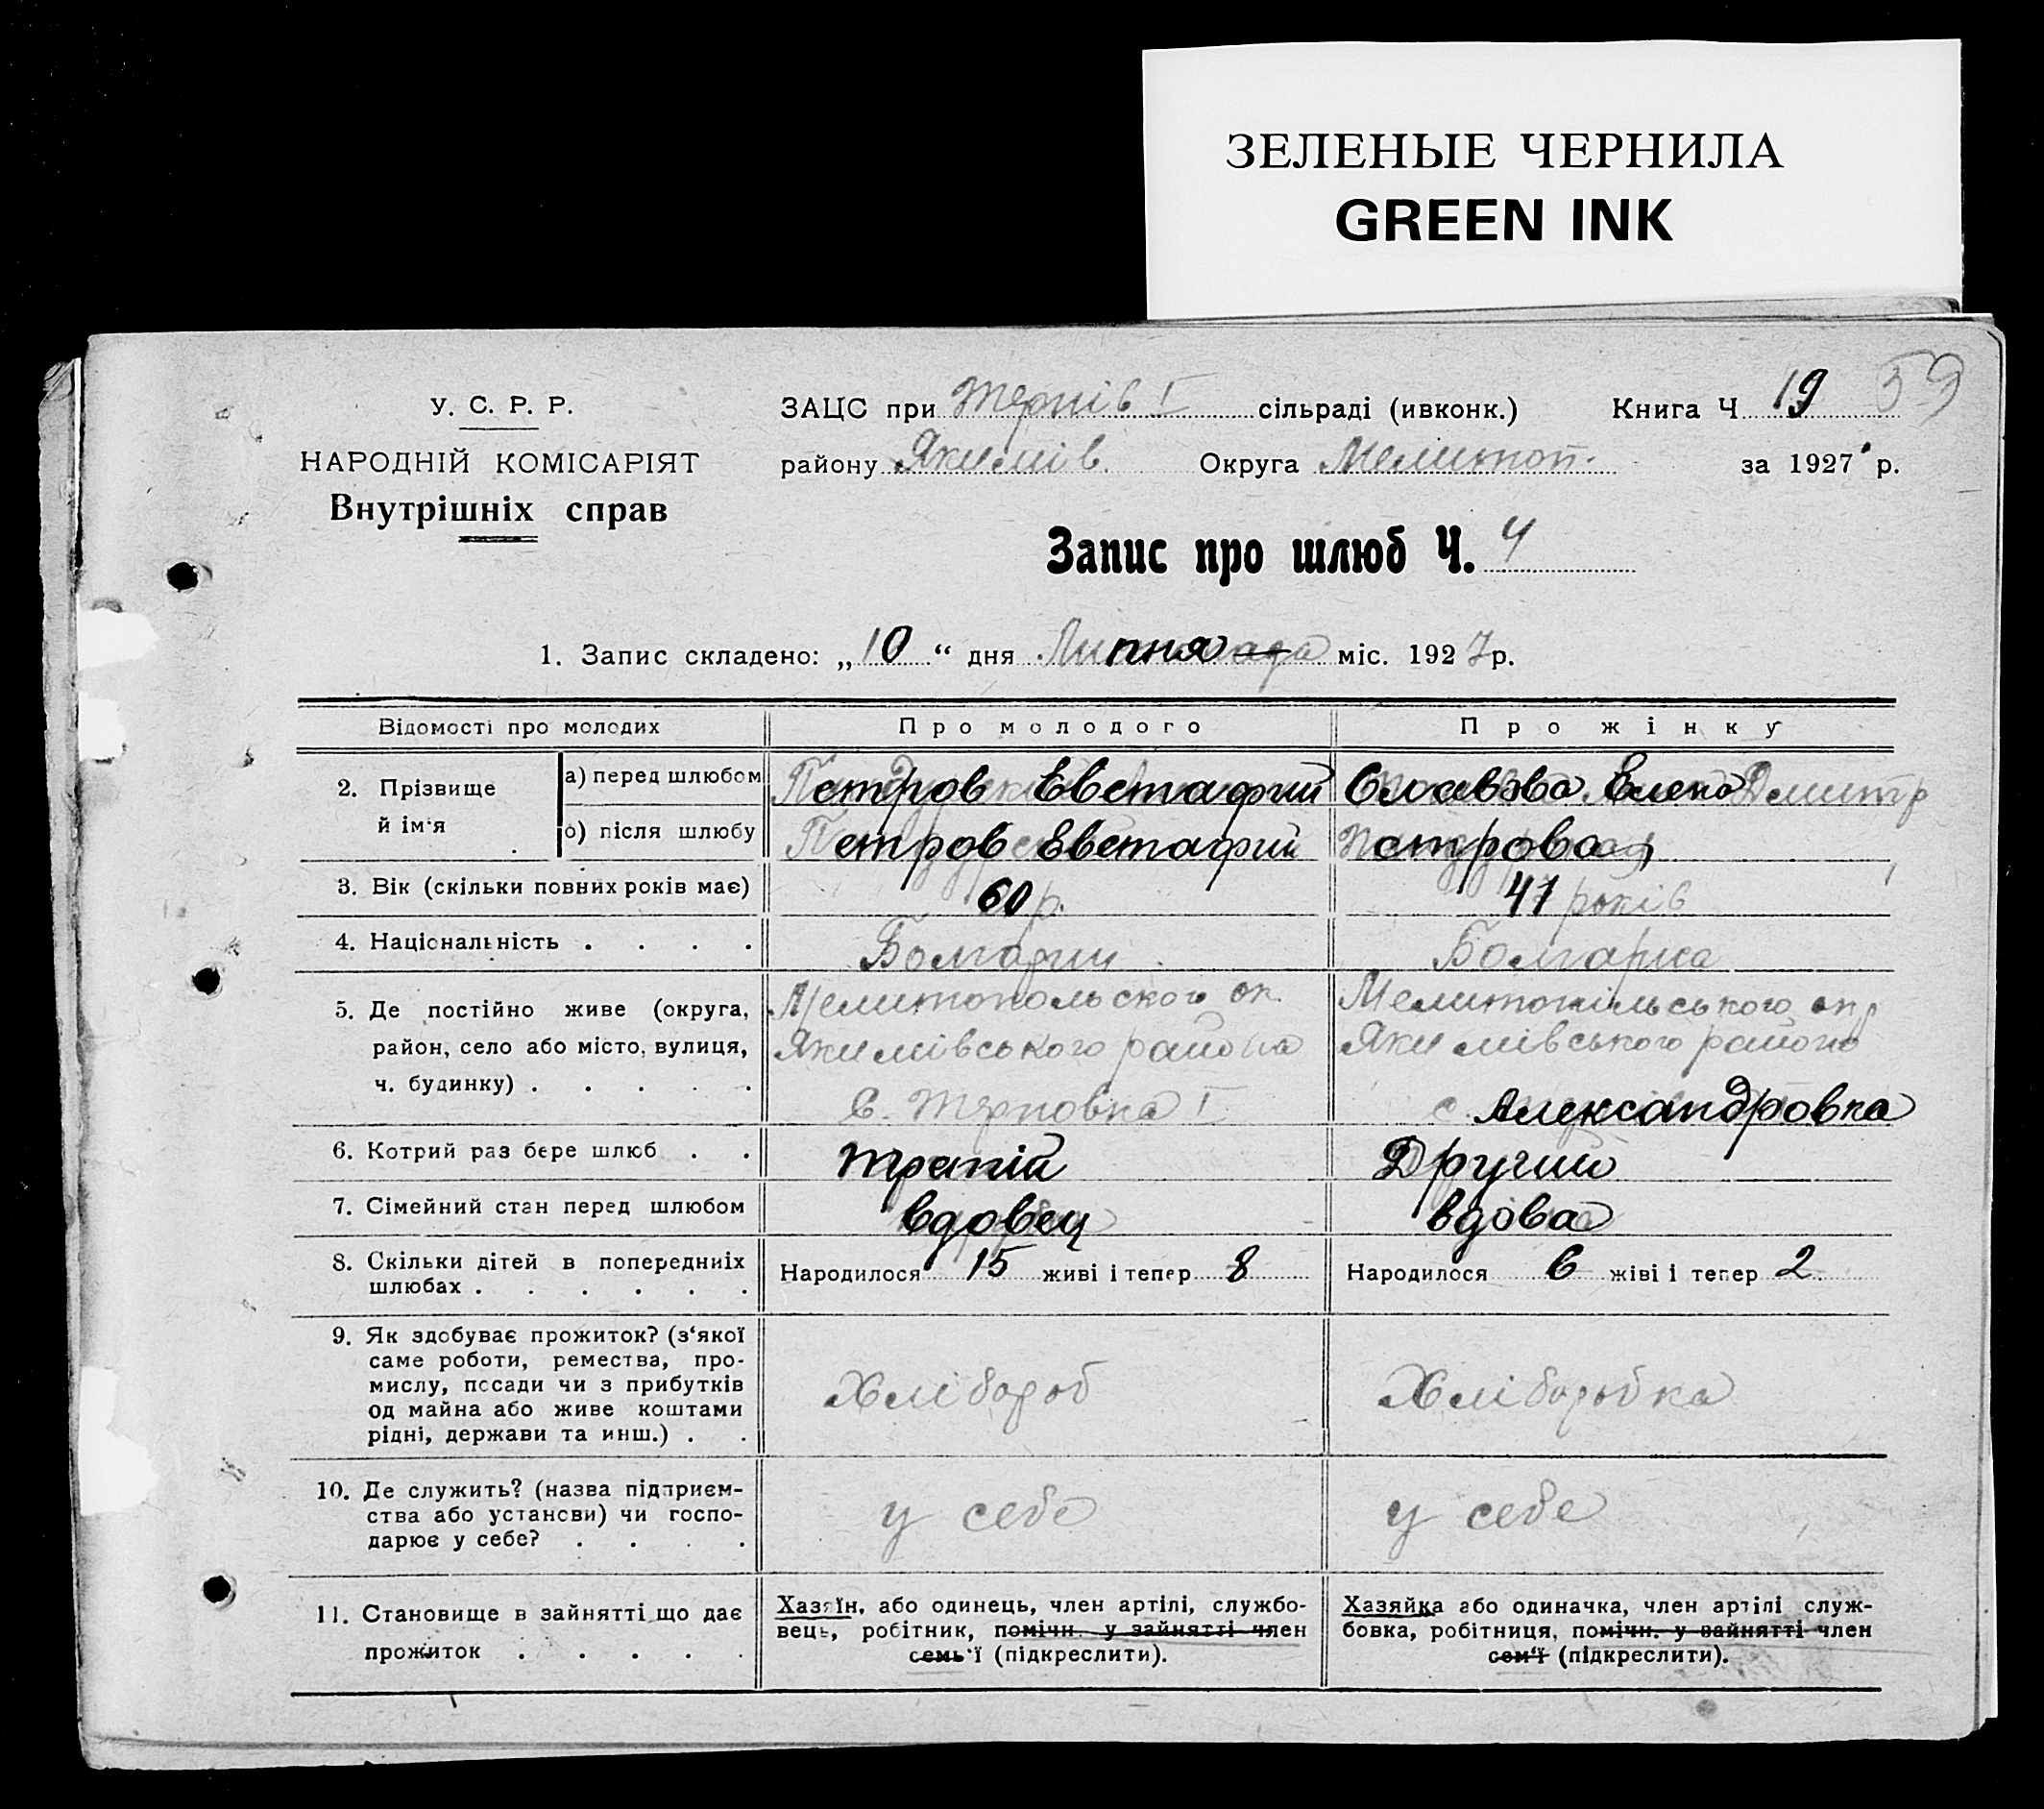 ЗЕЛЕНЫЕ ЧЕРНИЛА
GREEN INK
У. С. Р. Р.
НАРОДНІЙ КОМІСАРІЯТ
Внутрішніх справ
ЗАЦС при Терпів I сільраді (ивконк.) Книга Ч 19 59
району Якимів. Округа Мелитоп. за 1927 р.
Запис про шлюб Ч. 4
1. Запис складено: „ 10 “ дня Липня міс. 1927 р.
Відомості про молодих Про молодого Про жінку
2. Прізвище й ім‘я
а) перед шлюбом Петров Евстафий Елена Дмитр
б) після шлюбу Петров Евстафий Петрова
3. Вік (скільки повних років має) 60 р. 47 років
4. Національність . . . . Болгарин Болгарка
5. Де постійно живе (округа, Мелитопольского ок. Мелитопільського окр
район, село або місто, вулиця, Якимівського района Якимівського району
ч. будинку) . . . . . С. Терповка I с. Александровка
6. Котрий раз бере шлюб . . третій Другий
7. Сімейний стан перед шлюбом вдовец вдова
8. Скільки дітей в попередніх Народилося 15 живі і тепер 8 Народилося 6 жіві і тепер 2
шлюбах . . . . . .
9. Як здобуває прожиток? (з‘якої
саме роботи, ремества, про-
мислу, посади чи з прибутків Хлібороб Хліборобка
од майна або живе коштами
рідні, держави та инш.) . .
10. Де служить? (назва підприєм-
ства або установи) чи госпо- у себе у себе
дарює у себе? . . . .
11. Становище в зайнятті що дає
прожиток . . . . .
Хазяїн, або одинець, член артілі, службо-
вець, робітник, помічн. у зайнятті член
семь‘ї (підкреслити).
Хазяйка або одиначка, член артілі служ-
бовка, робітниця, помічн. у зайнятті член
сем‘ї (підкреслити).